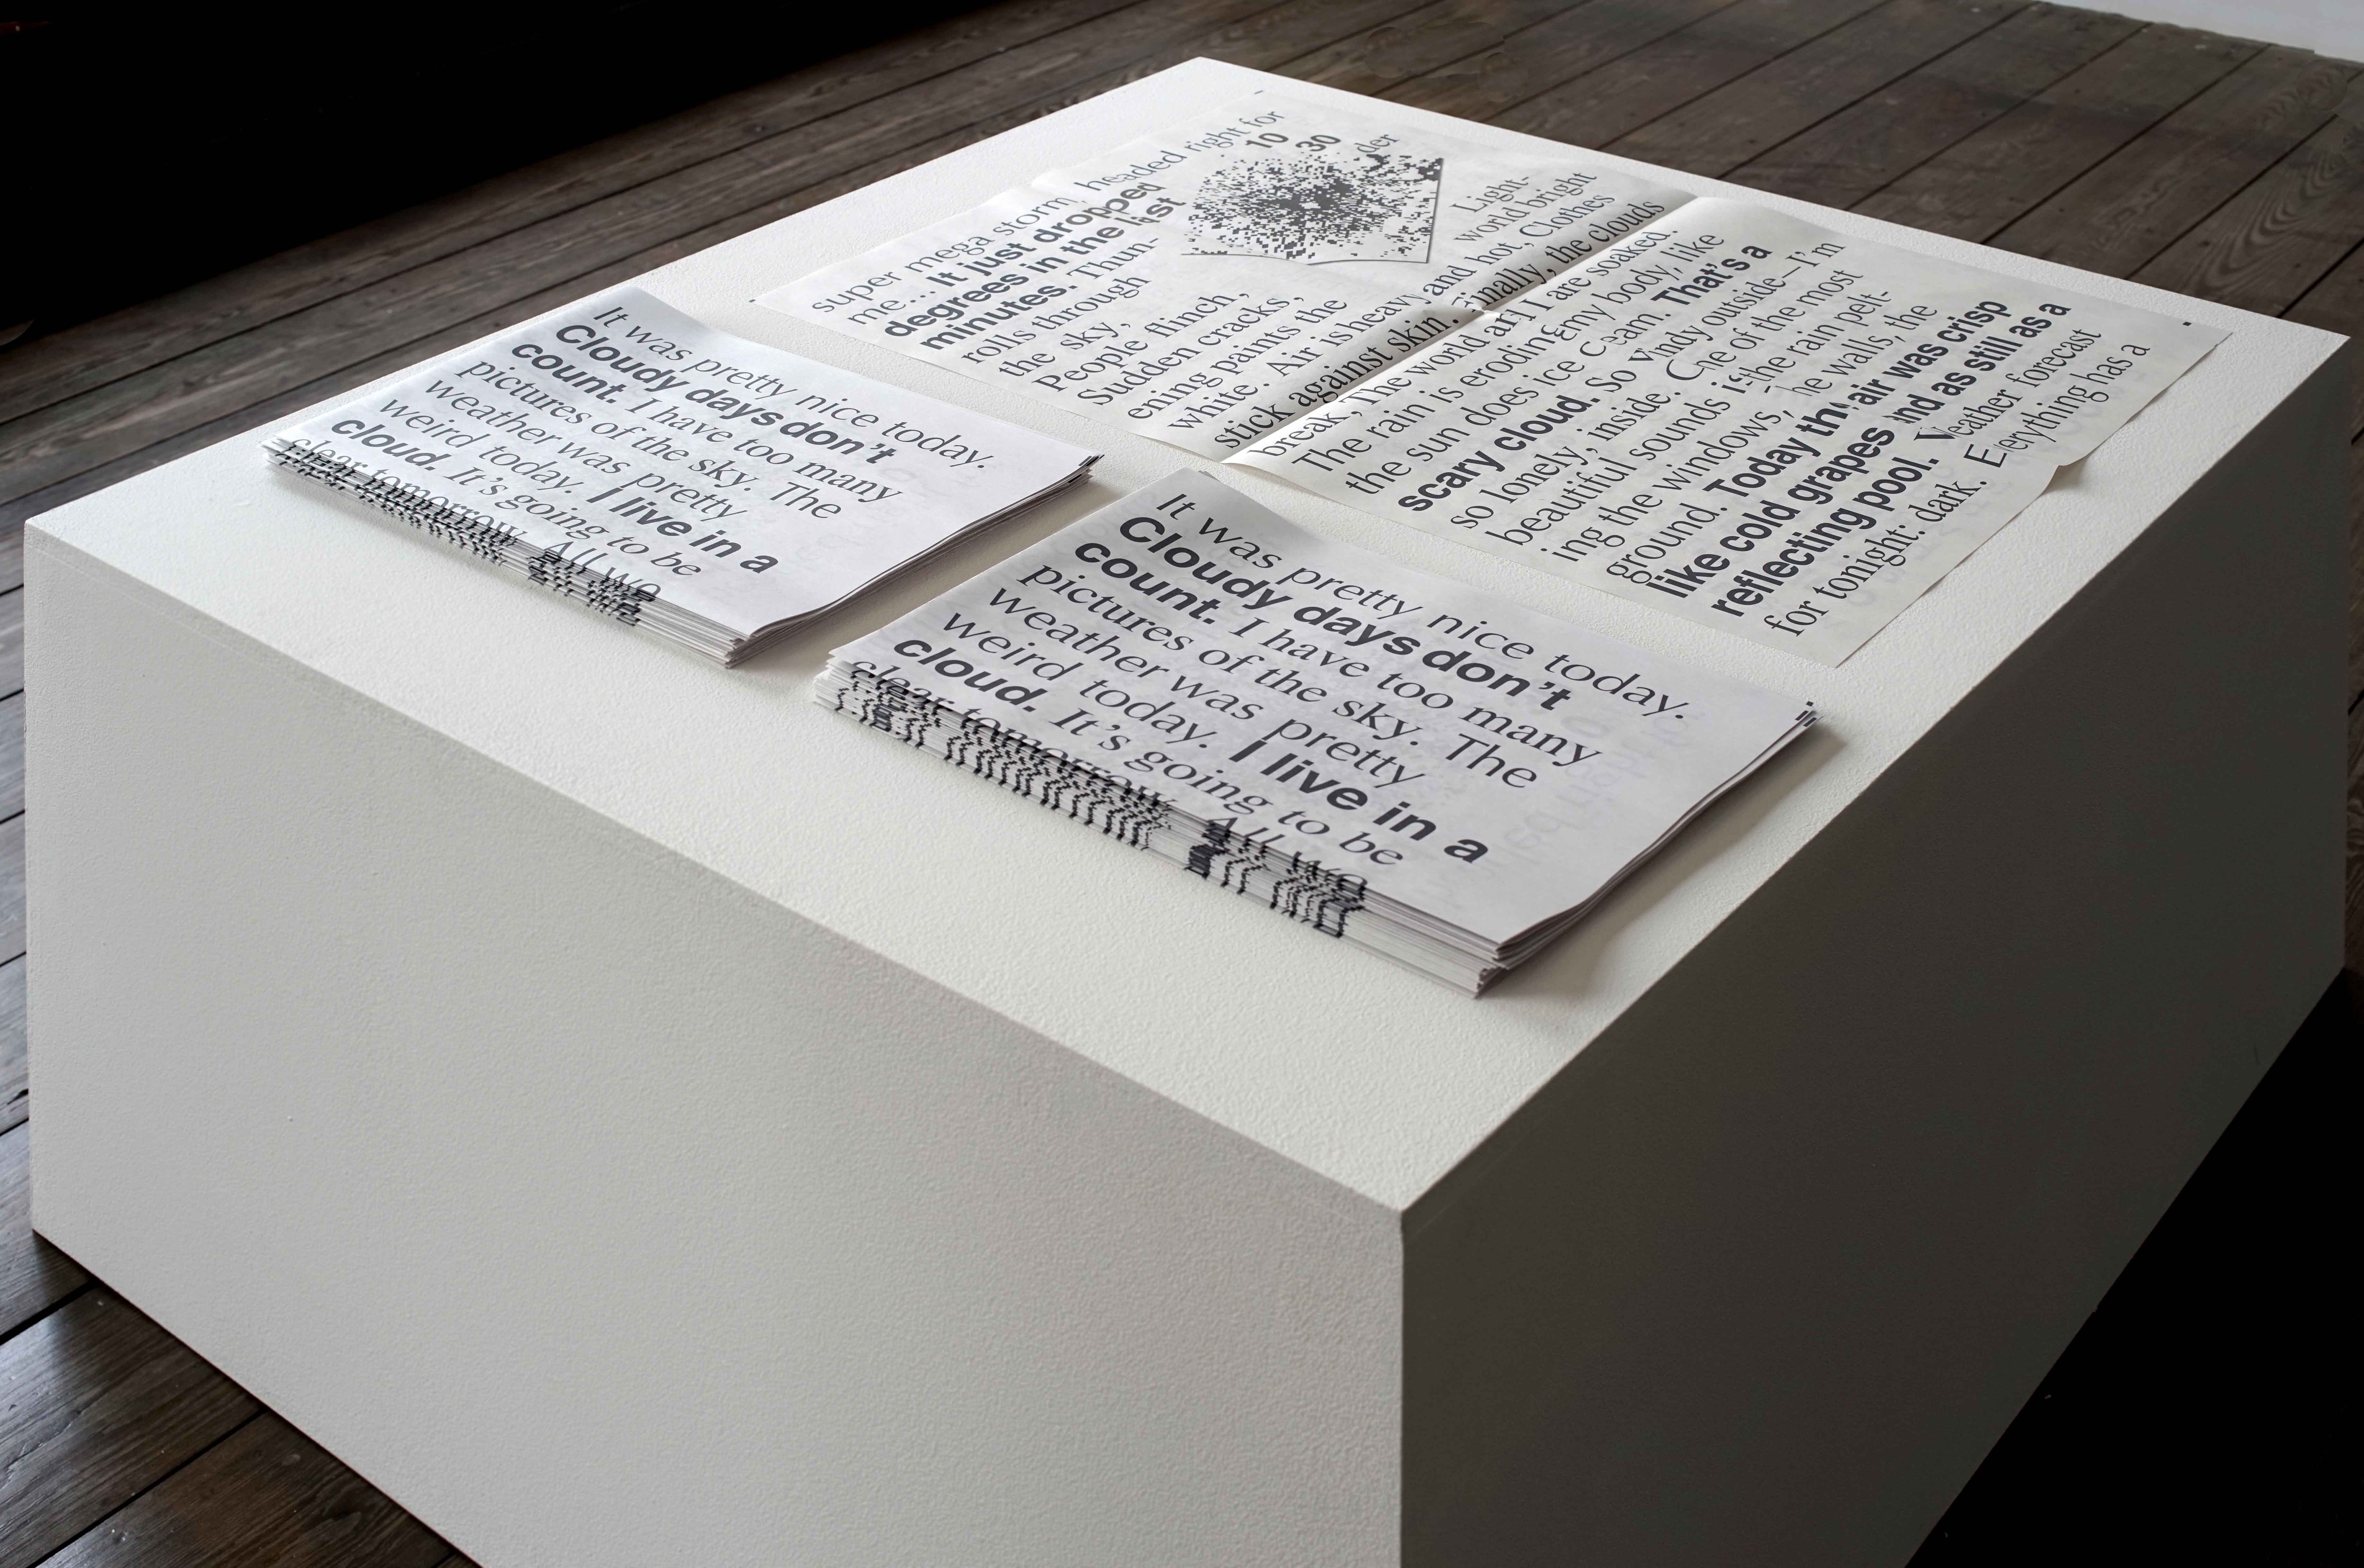 super mega storm, headed right for
me... It just dropped 10
degrees in the last 30
minutes. Thun- der
rolls through
the sky,
People flinch,
Sudden cracks, Light-
ening paints the world bright
white. Air is heavy and hot, Clothes
stick against skin. Finally, the clouds
break, The world and I are soaked.
The rain is eroding my body, like
the sun does ice cream. That's a
scary cloud. So windy outside—I'm
so lonely, inside. One of the most
beautiful sounds is the rain pelt-
ing the windows, the walls, the
ground. Today the air was crisp
like cold grapes and as still as a
reflecting pool. Weather forecast
for tonight: dark. Everything has a
It was pretty nice today.
Cloudy days don't
count. I have too many
pictures of the sky. The
weather was pretty
weird today. I live in a
cloud. It's going to be
clear tomorrow. All
It was pretty nice today.
Cloudy days don't
count. I have too many
pictures of the sky. The
weather was pretty
weird today. I live in a
cloud. It's going to be
clear tomorrow. All